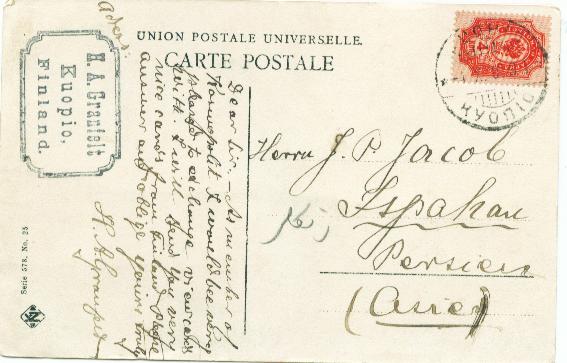 UNION POSTALE UNIVERSELLE.
CARTE POSTALE
H. A. Granfelt
Kuopio,
Finland.
adress:
Dear Sir. – As member of
Kosmopolit I would be very
pleased to exchange viewcards
with. I will send you very
nice cards from Finland. Please
answer and oblige yours truly
H. A. Granfelt
Herrn J. P. Jacob
Ispahan
Persien
(Asien)
KUOPIO
4
Serie 578. No. 25